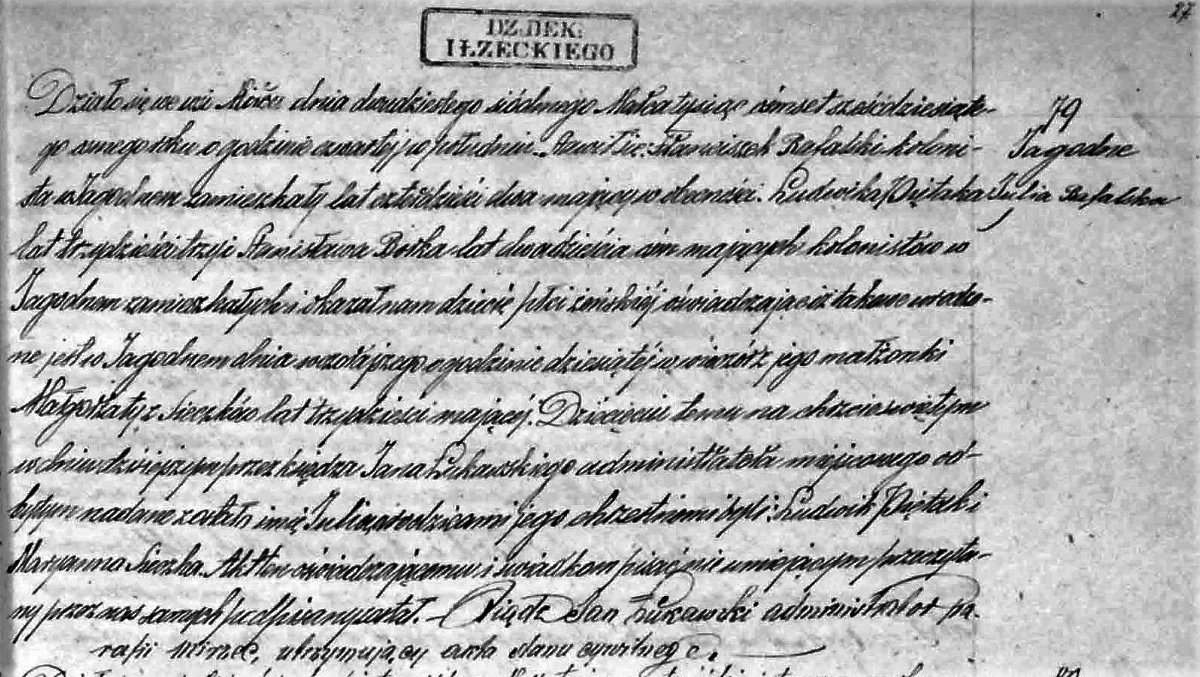 27
DZ.DEK.
IŁZECKIEGO
Działo się we wsi dnia dwudziestego siódmego Maia tysiąc ośmset sześćdziesiąte-
go roku o godzinie czwartej w południu. Stawił się Stanisszek Rafalski koloni-
sta w Jagodnem zamieszkały lat czterdzieści dwa mający w obecności. Ludwika Piętaka
lat trzydzieści trzy i Stanisława Botka lat dwadzieścia ośm mających kolonistów w
Jagodnem zamieszkałych i okazał nam dziecię płci żeńskiéj oświadczając iż takowe urodzo-
ne jest w Jagodnem dnia wczorajszego o godzinie dziesiątéj w wieczór z jego małżonki
Małgorzaty z Sieczków lat trzydzieści mającéj. Dziecięciu temu na chrzcie świętym
w dniu dzisiejszym przez księdza Jana Łukawskiego administratora miejscowego od-
bytym nadane zostało imię Julia, a rodzicami jego chrzestnemi byli: Ludwik Piętak i
Maryanna Sieczka. Akt ten oświadczającemu i świadkom pisać nie umiejącym przeczyta-
ny przez nas samych podpisany został. — Ksiądz Jan Łukawski administrator pa-
rafii utrzymujący akta stanu cywilnego.
79
Jagodne
Julia Rafalska